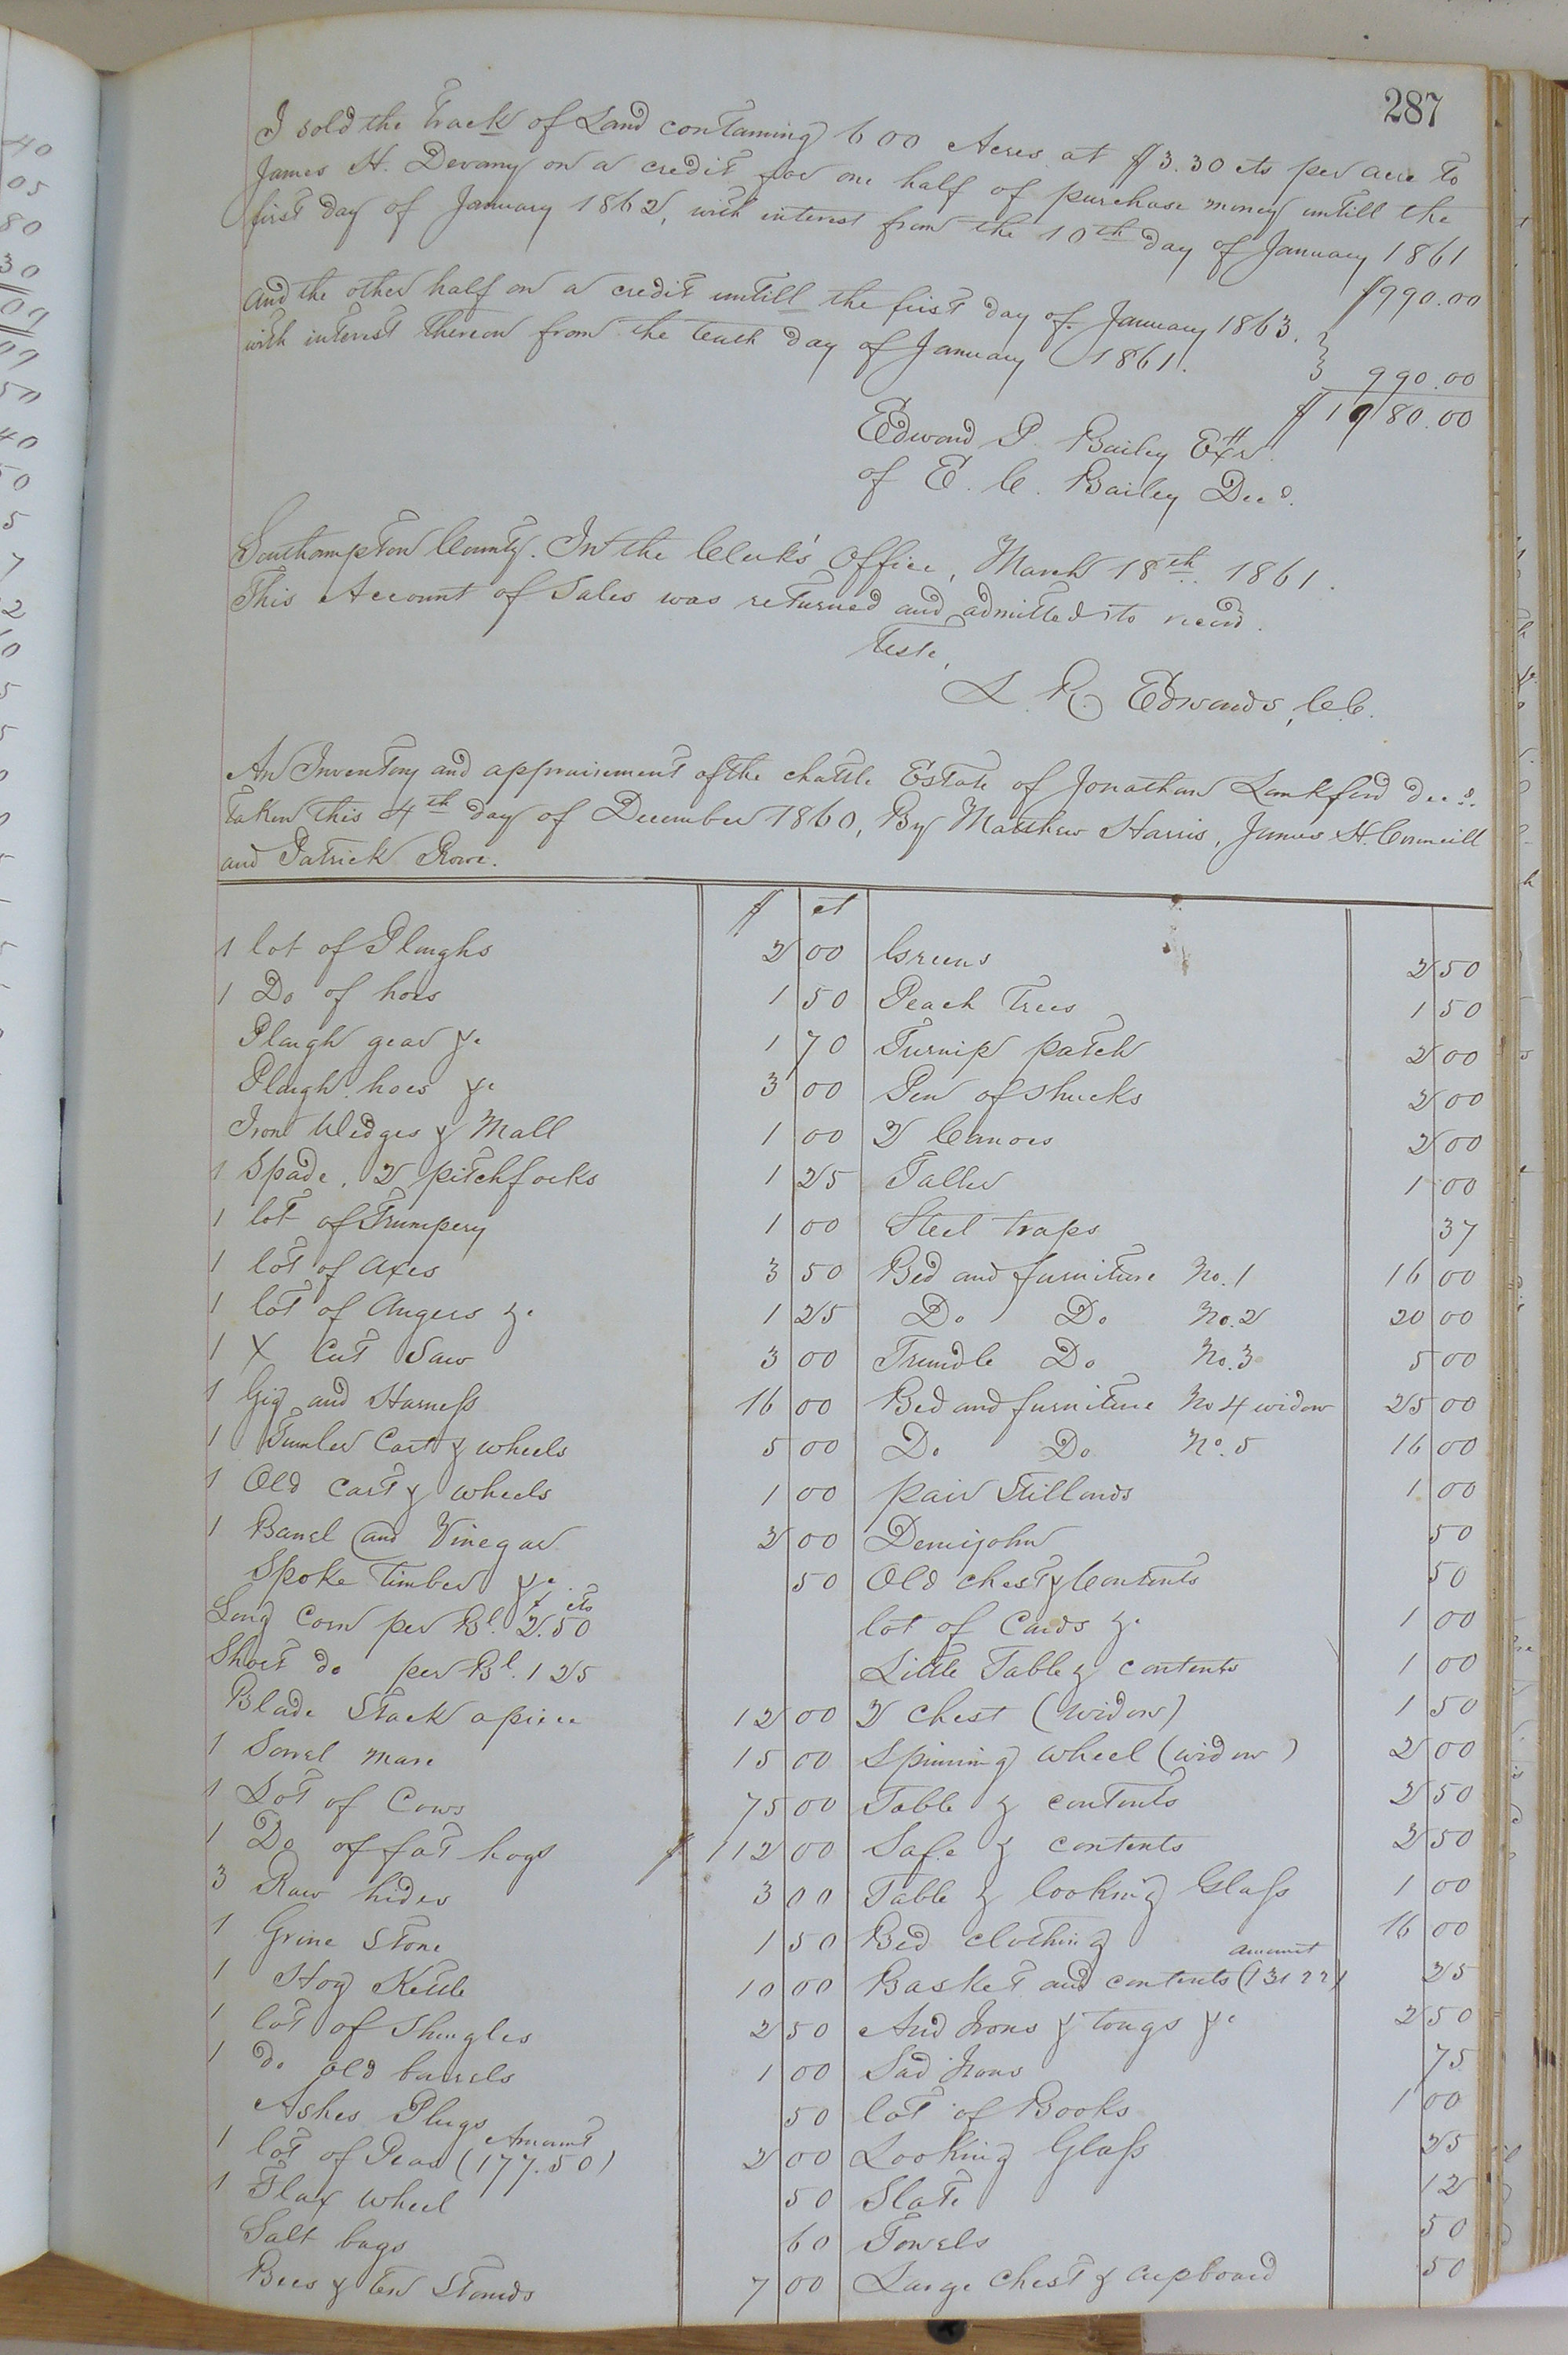 287
I sold the track of Land containing 600 Acres at $3.30 cts per acre to
James H. Devany on a credit for one half of purchase money untill the
first day of January 1862, with interest from the 10th day of January 1861
$990.00
and the other half on a credit untill the first day of January 1863.
with interest thereon from the tenth day of January 1861.
990.00
$1980.00
Edward P. Bailey Exr
of E. C. Bailey Decd.
Southampton County. In the Clerk's Office, March 18th 1861.
This Account of Sales was returned and admitted to record.
Teste,
L. R. Edwards, C.C.
An Inventory and appraisement of the chattle Estate of Jonathan Lankford decd.
taken this 4th day of December 1860, By Matthew Harris, James H. Councill
and Patrick Rowe.
$ ct
1 lot of Ploughs 2 00
1 Do of hoes 1 50
Plough gear &c 1 70
Plough hoes &c 3 00
Iron Wedges & Mall 1 00
1 Spade, 2 pitchforks 1 25
1 lot of Trumpery 1 00
1 lot of Axes 3 50
1 lot of Augers &c 1 25
1 X Cut Saw 3 00
1 Gig and Harness 16 00
1 Tumler Cart & wheels 5 00
1 Old Cart & wheels 1 00
1 Barrel and Vinegar 2 00
Spoke timber &c. 50
Long Corn per Bl. $2.50 cts
Short do per Bl. 1 25
Blade Stack apiece 12 00
1 Sorrel mare 15 00
1 Lot of Cows 75 00
1 Do of fat hogs $ 112 00
3 Raw hides 3 00
1 Grine Stone 1 50
1 Hog Kettle 10 00
1 lot of Shingles 2 50
1 do old barrels 1 00
Ashes Plugs 50
1 lot of Peas (Amount 177.50) 2 00
1 Flax Wheel 50
Salt bags 60
Bees & ten Stands 7 00
Greens 2 50
Peach Trees 1 50
Turnip patch 2 00
Pen of shucks 2 00
2 Canoes 2 00
Taller 1 00
Steel traps 37
Bed and furniture No. 1 16 00
Do Do No. 2 20 00
Trundle Do No. 3 5 00
Bed and furniture No 4 widow 25 00
Do Do No. 5 16 00
pair Stillards 1 00
Demijohn 50
Old chest & Contents 50
lot of Cards &c 1 00
Little Table & contents 1 00
2 Chest (widow) 1 50
Spinning Wheel (widow) 2 00
Table & contents 2 50
Safe & contents 2 50
Table & looking Glass 1 00
Bed clothing 16 00
Basket and contents (amount ) 25
And Irons & tongs &c 2 50
Sad Irons 75
lot of Books 1 00
Looking Glass 25
Slate 12
Towels 50
Large Chest & cupboard 50